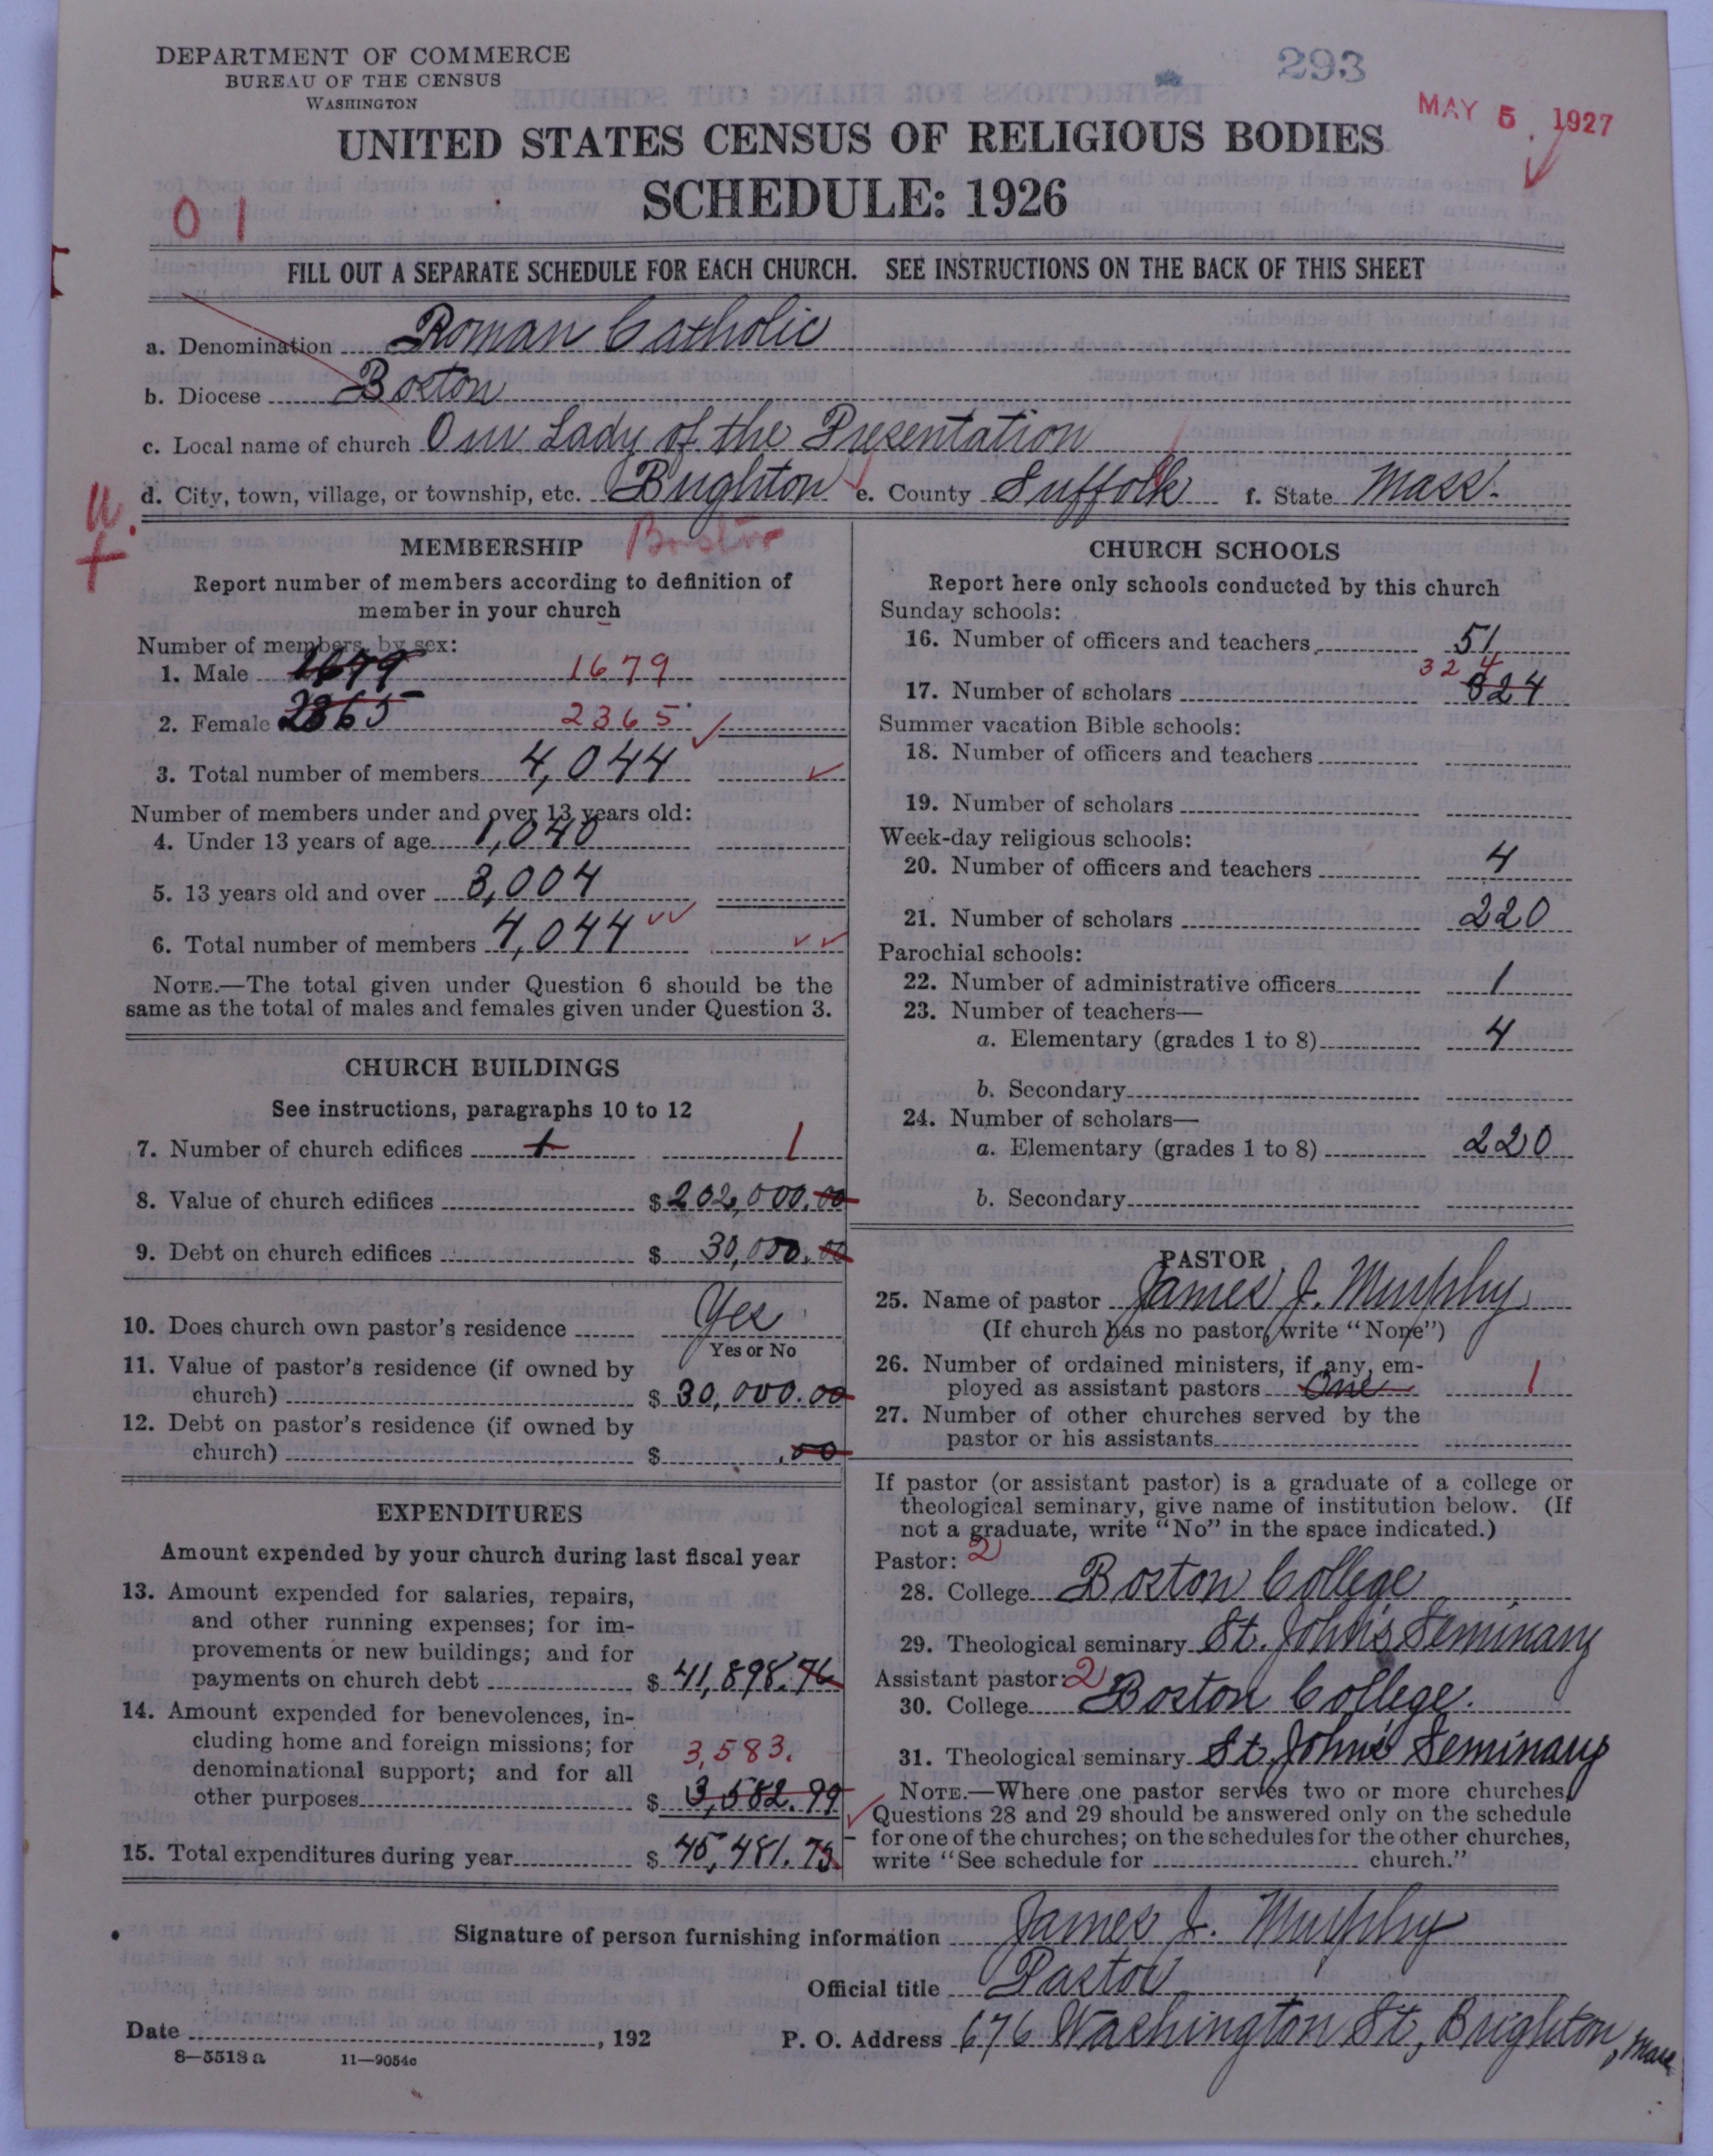 DEPARTMENT OF COMMERCE
BUREAU OF THE CENSUS
WASHINGTON
293
MAY 5 1927
UNITED STATES CENSUS OF RELIGIOUS BODIES
SCHEDULE: 1926
01
FILL OUT A SEPARATE SCHEDULE FOR EACH CHURCH. SEE INSTRUCTIONS ON THE BACK OF THIS SHEET
a. Denomination Roman Catholic
b. Diocese Boston
c. Local name of church Our Lady of the Presentation
d. City, town, village, or township, etc. Brighton e. County Suffolk f. State Mass.
MEMBERSHIP Boston
Report number of members according to definition of
member in your church
Number of members, by sex:
1. Male 1679 1679
2. Female 2365 2365
3. Total number of members 4,044
Number of members under and over 13 years old:
4. Under 13 years of age 1,040
5. 13 years old and over 3,004
6. Total number of members 4,044
NOTE.—The total given under Question 6 should be the
same as the total of males and females given under Question 3.
CHURCH BUILDINGS
See instructions, paragraphs 10 to 12
7. Number of church edifices 1 1
8. Value of church edifices $ 202,000.00
9. Debt on church edifices $ 30,000.00
10. Does church own pastor's residence Yes
Yes or No
11. Value of pastor's residence (if owned by
church) $ 30,000.00
12. Debt on pastor's residence (if owned by
church) $ .00
EXPENDITURES
Amount expended by your church during last fiscal year
13. Amount expended for salaries, repairs,
and other running expenses; for im-
provements or new buildings; and for
payments on church debt $ 41,898.76
14. Amount expended for benevolences, in-
cluding home and foreign missions; for
denominational support; and for all
3,583.
other purposes $ 3,582.99
15. Total expenditures during year $ 45,481.75
CHURCH SCHOOLS
Report here only schools conducted by this church
Sunday schools:
16. Number of officers and teachers 51
324
17. Number of scholars 824
Summer vacation Bible schools:
18. Number of officers and teachers
19. Number of scholars
Week-day religious schools:
20. Number of officers and teachers 4
21. Number of scholars 220
Parochial schools:
22. Number of administrative officers 1
23. Number of teachers—
a. Elementary (grades 1 to 8) 4
b. Secondary
24. Number of scholars—
a. Elementary (grades 1 to 8) 220
b. Secondary
PASTOR
25. Name of pastor James J. Murphy
(If church has no pastor, write "None")
26. Number of ordained ministers, if any, em-
ployed as assistant pastors One 1
27. Number of other churches served by the
pastor or his assistants
If pastor (or assistant pastor) is a graduate of a college or
theological seminary, give name of institution below. (If
not a graduate, write "No" in the space indicated.)
Pastor: 2
28. College Boston College
29. Theological seminary St. John's Seminary
Assistant pastor: 2
30. College Boston College.
31. Theological seminary St. John's Seminary
NOTE.—Where one pastor serves two or more churches,
Questions 28 and 29 should be answered only on the schedule
for one of the churches; on the schedules for the other churches,
write "See schedule for church."
Signature of person furnishing information James J. Murphy
Official title Pastor
Date , 192 P. O. Address 676 Washington St., Brighton, Mass
8—5518a 11—9054c